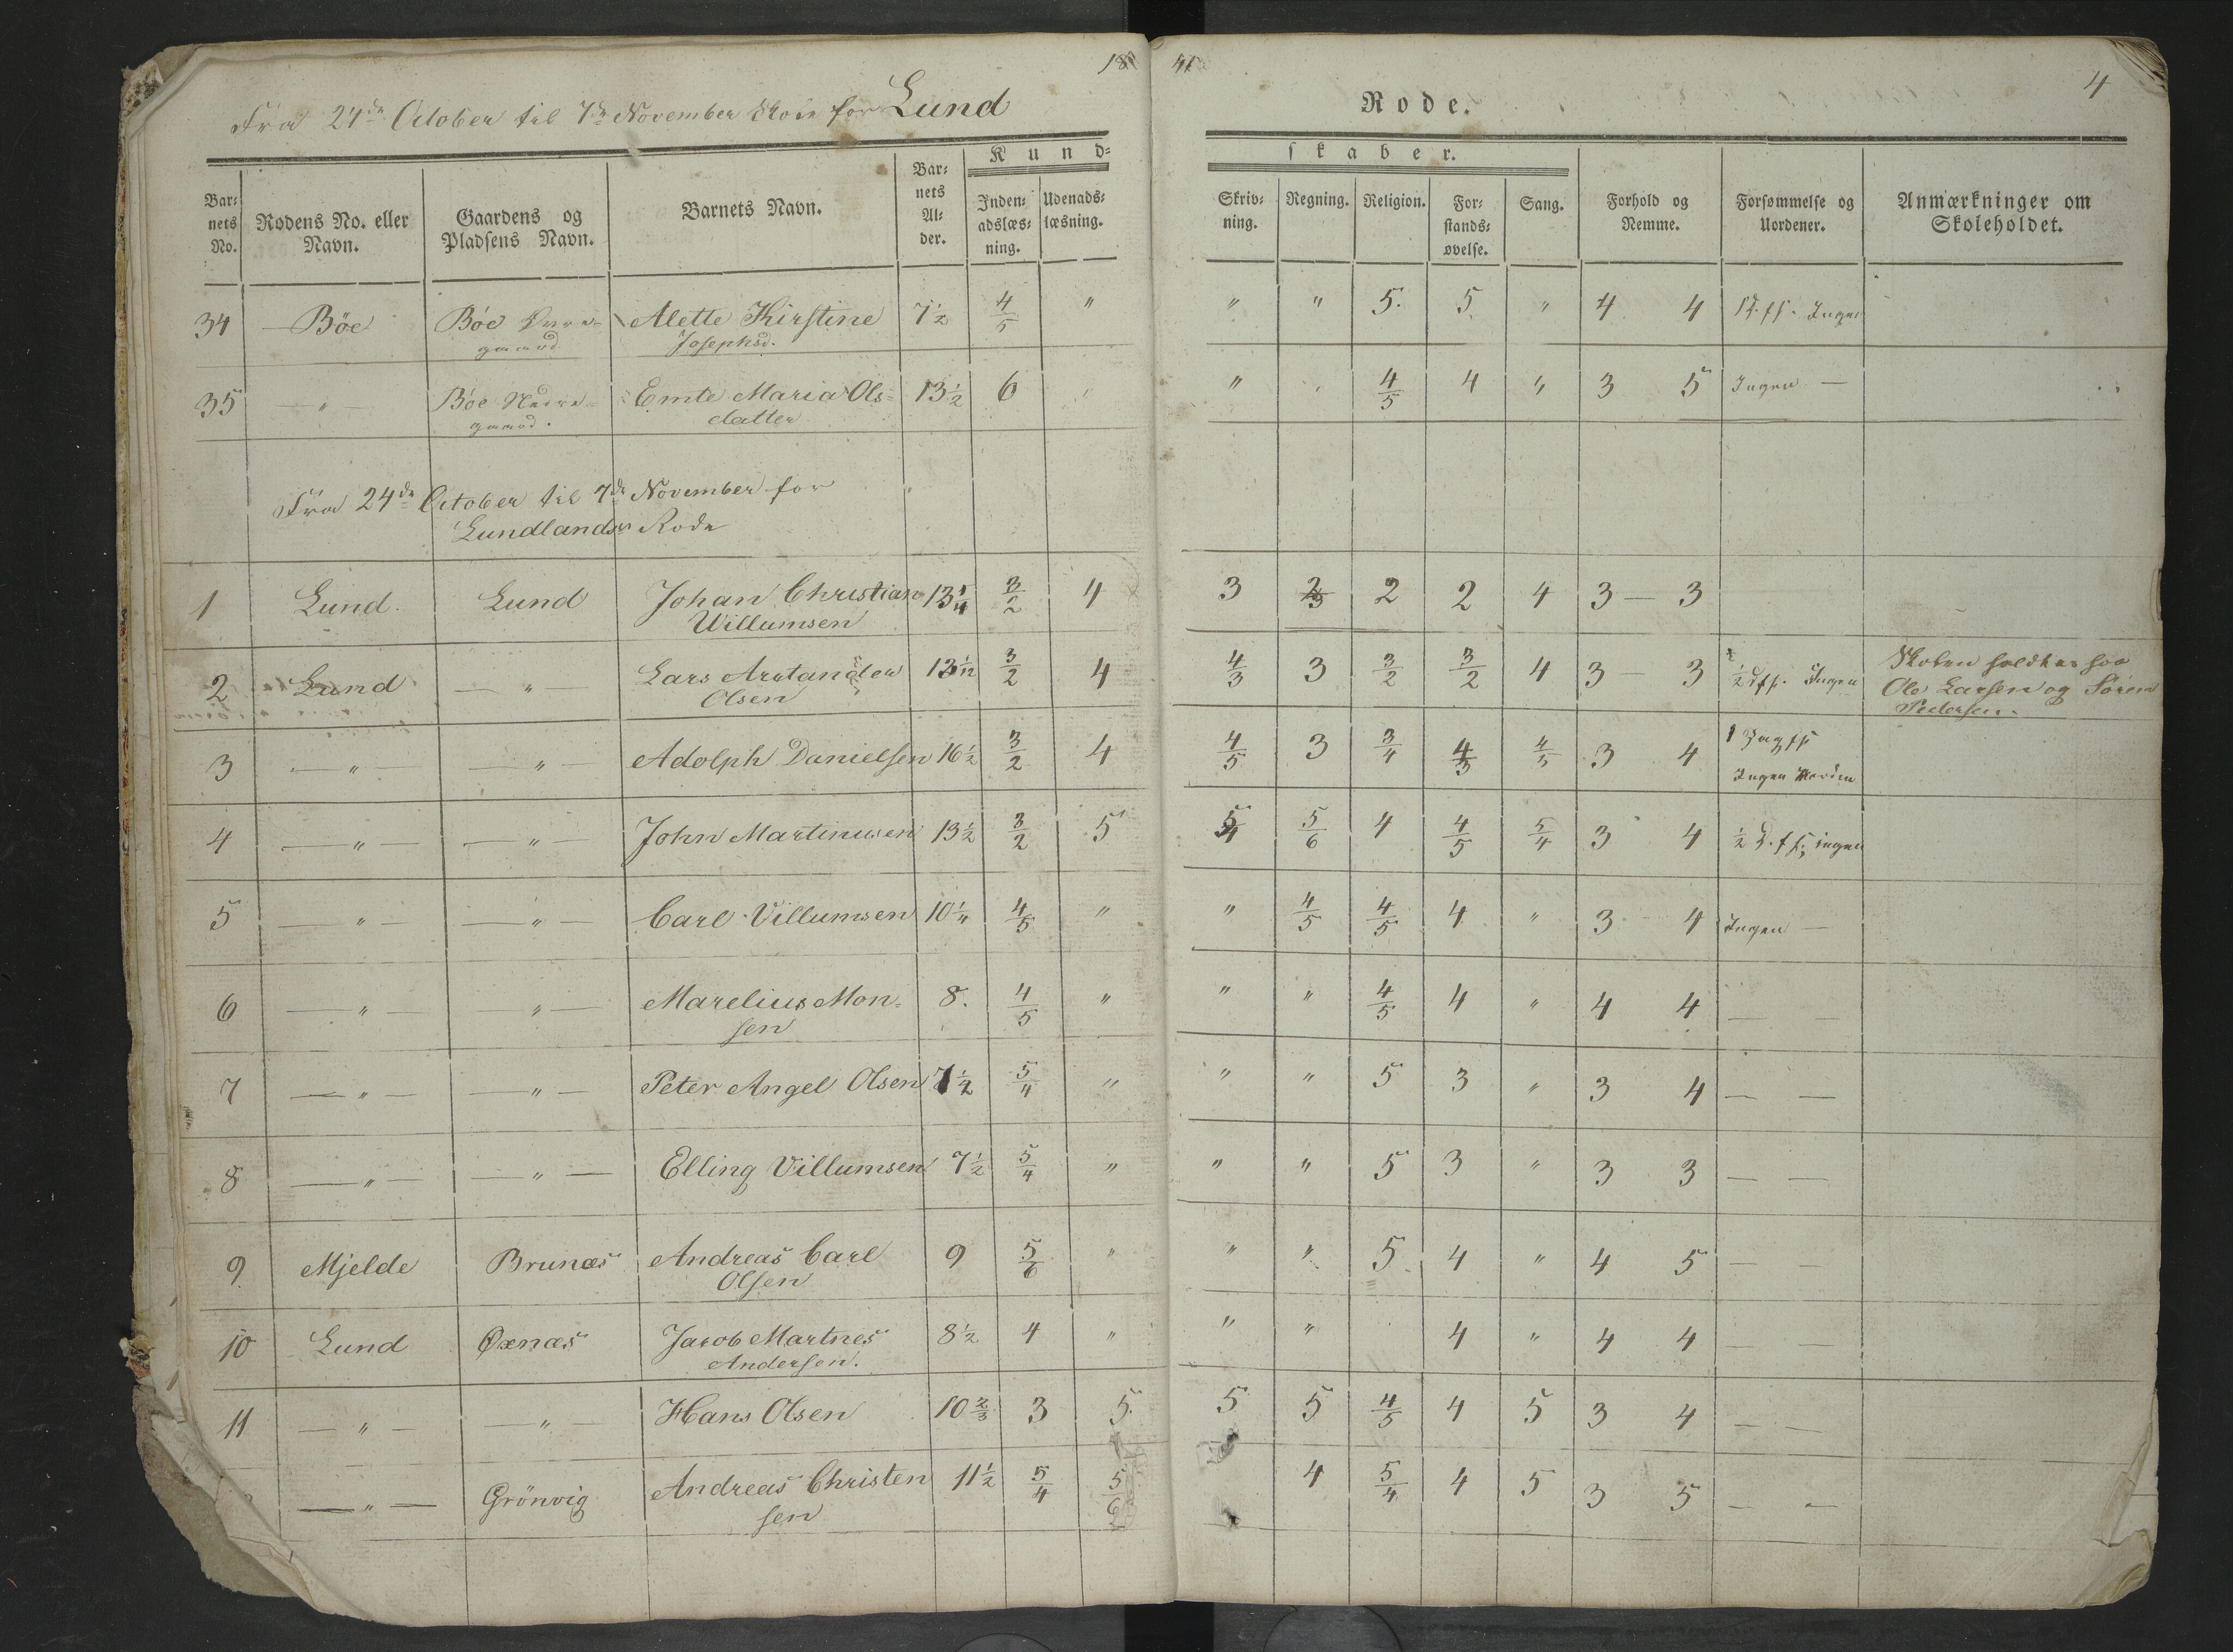 18 41
4
Fra 24de October til 7de November Skole for Lund
Rode.
Kund- skaber.
Bar- nets No. | Rodens No. eller Navn. | Gaardens og Pladsens Navn. | Barnets Navn. | Bar- nets Al- der. | Inden- adslæs- ning. | Udenads- læsning. | Skriv- ning. | Regning. | Religion. | For- stands- øvelse. | Sang. | Forhold og Nemme. | Forsømmelse og Uordener. | Anmærkninger om Skoleholdet.
34 Böe Böe Alette Kirstine 7½ 4/5 " " " 5. 5 " 4 4 Ingen
gaard Josephsd.
35 — " — Böe Nedre- Emte Maria Ols- 13½ 6 " " " 4/5 4 " 3 5 Ingen —
gaard. datter
Fra 24de October til 7de November for
Lundlandes Rode
1 Lund. Lund Johan Christian 13¼ 3/2 4 3 2/3 2 2 4 3 — 3
Willumsen
2 Lund — " — Lars 3/2 4 4/3 3 3/2 3/2 4 3 — 3 ½ d. fs. Ingen Skolen holdtes hos
Olsen Ole Larsen og Sören
Pedersen.
3 — " — — " — Adolph Danielsen 16½ 3/2 4 4/5 3 3/4 4/3 4/5 3 4 1 Dag fs
Ingen Uorden
4 — " — — " — John Martinusen 13½ 3/2 5 5/4 5/6 4 4/5 5/4 3 4 ½ D. fs; ingen
5 — " — — " — Carl Villumsen 10¼ 4/5 " " 4/5 4/5 4 " 3 4 Ingen —
6 — " — — " — Marelius Mon- 8. 4/5 " " " 4/5 4 " 4 4 — —
sen
7 — " — — " — Peter Angel Olsen 7½ 5/4 " " " 5 3 " 3 4 — —
8 — " — — " — Elling Villumsen 7½ 5/4 " " " 5 3 " 3 3 — —
9 Mjelde Brunæs Andreas Carl 9 5/6 " " " 5 4 " 4 5 — —
Olsen
10 Lund Öxnæs Jacob Martnes 8½ 4 " " " 4 " 4 4 — —
Andersen.
11 — " — — " — Hans Olsen 10⅔ 3 5 5 5 4/5 4 5 3 4 — —
— " — Grönvig Andreas Christen 11½ 5/4 5/6 4 5/4 4 5 3 5 — —
sen